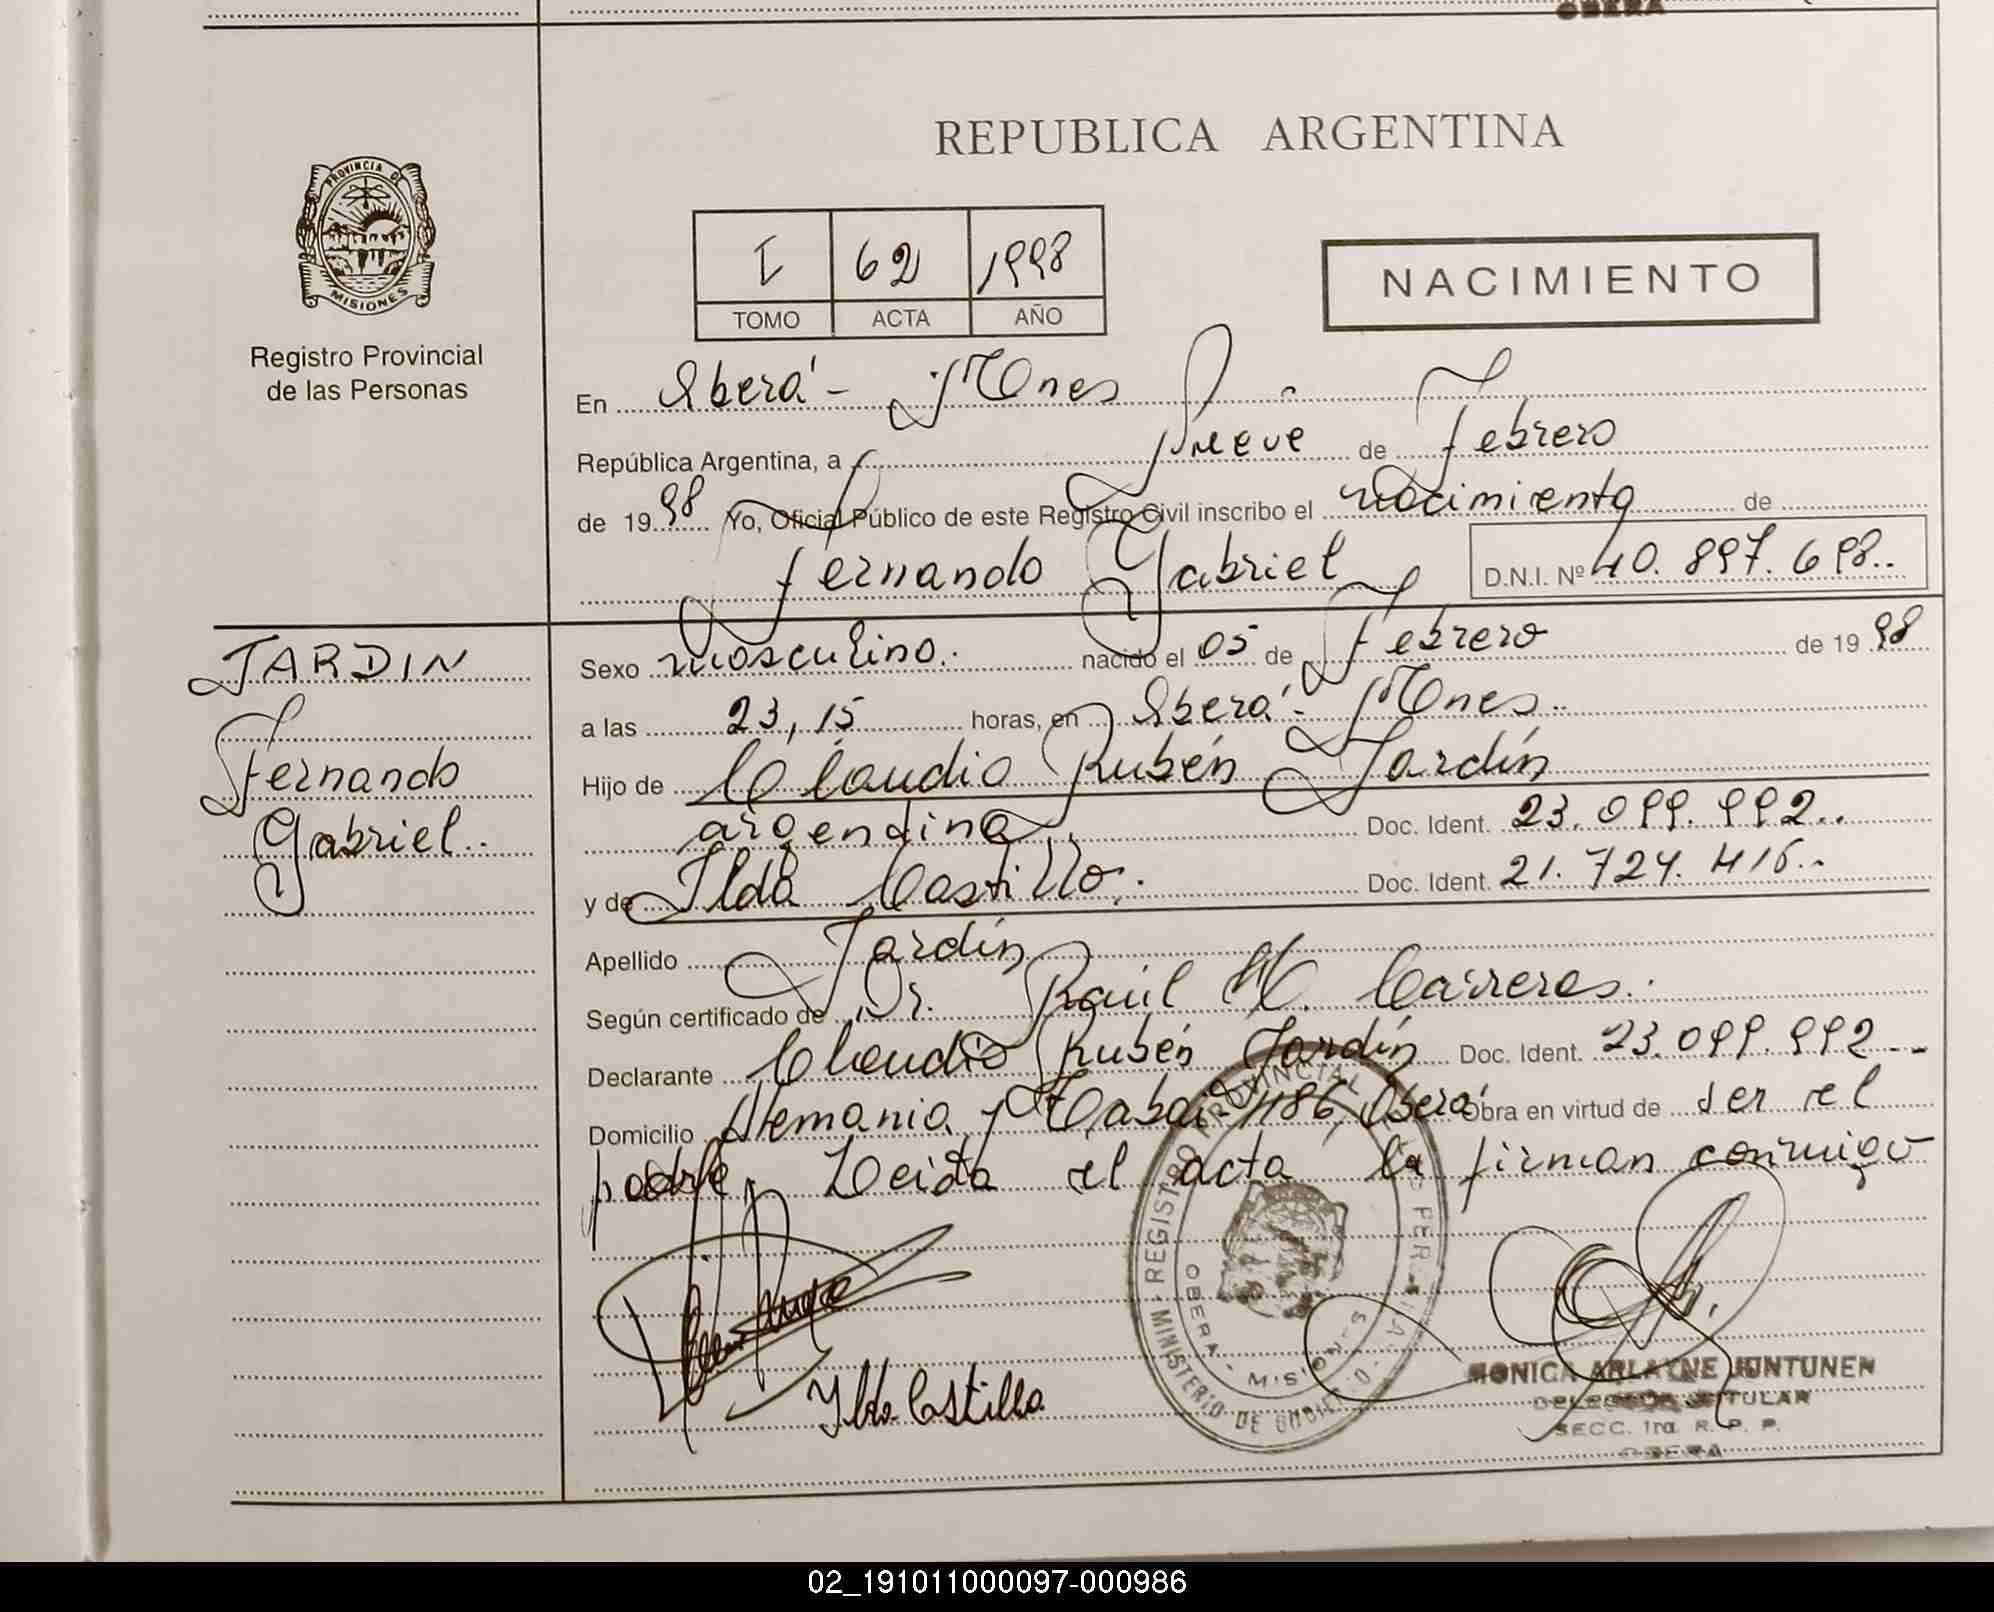 OBERA
REPUBLICA ARGENTINA
PROVINCIA DE
MISIONES
Registro Provincial
de las Personas
I 62 1998
TOMO ACTA AÑO
NACIMIENTO
En Oberá - Mnes
República Argentina, a nueve de Febrero
de 1998 Yo, Oficial Público de este Registro Civil inscribo el nacimiento de
Fernando Gabriel D.N.I. Nº 40.897.698..
JARDIN
Fernando
Gabriel..
Sexo masculino.. nacido el 05 de Febrero de 1998
a las 23,15 horas, en Oberá - Mnes..
Hijo de Claudio Rubén Jardín
argentina.. Doc. Ident. 23.099.992..
y de Ilda Castillo. Doc. Ident. 21.724.416..
Apellido Jardín
Según certificado de Dr. Raúl H. Carreras.
Declarante Claudio Rubén Jardín Doc. Ident. 23.099.992--
Domicilio Alemania y 486, Oberá Obra en virtud de ser el
padre. Leída el acta la firman conmigo
REGISTRO PROVINCIAL
OBERA - MISIONES
MINISTERIO DE GOBIERNO
Ilda Castillo
MONICA ARLAYNE JUNTUNEN
DELEGADA TITULAR
SECC. 1ra. R. P. P.
OBERA
02_191011000097-000986